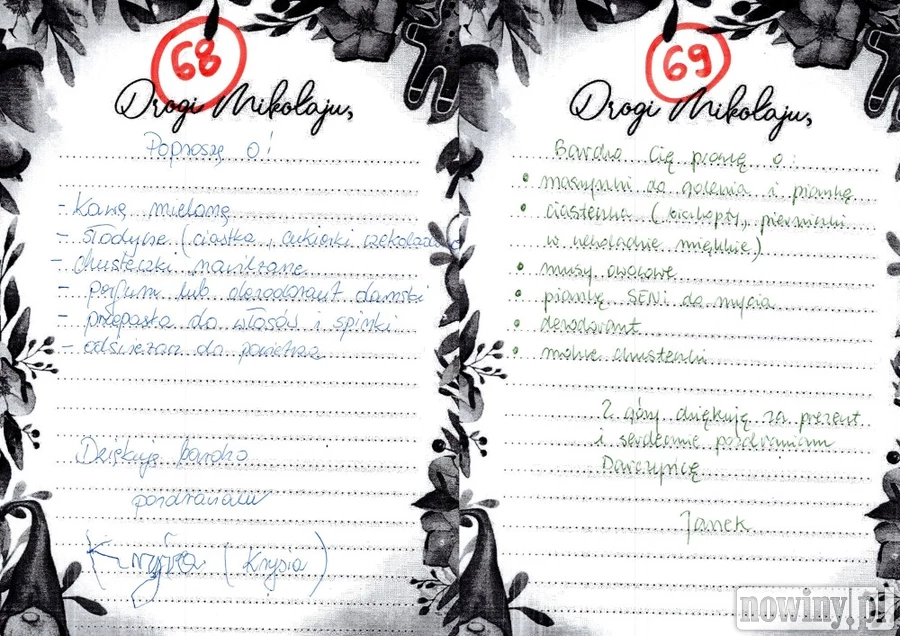 68
Drogi Mikołaju,
Poproszę o!
- Kawę mieloną
- słodycze (ciastka, cukierki czekolada
- chusteczki nawilżane
- perfumy lub dezodorant damski
- przepaska do włosów i spinki
- odświeżacz do powietrza
Dziękuję bardzo
pozdrawiam
(Krysia)
69
Drogi Mikołaju,
Bardzo Cię proszę o:
• maszynki do golenia i piankę
• ciasteczka (biszkopty, pierniczki
w czekoladzie miękkie)
• musy owocowe
• piankę SENI do mycia
• dezodorant
• mokre chusteczki
Z góry dziękuję za prezent
i serdecznie pozdrawiam
Darczyńcę
Janek
nowiny.pl